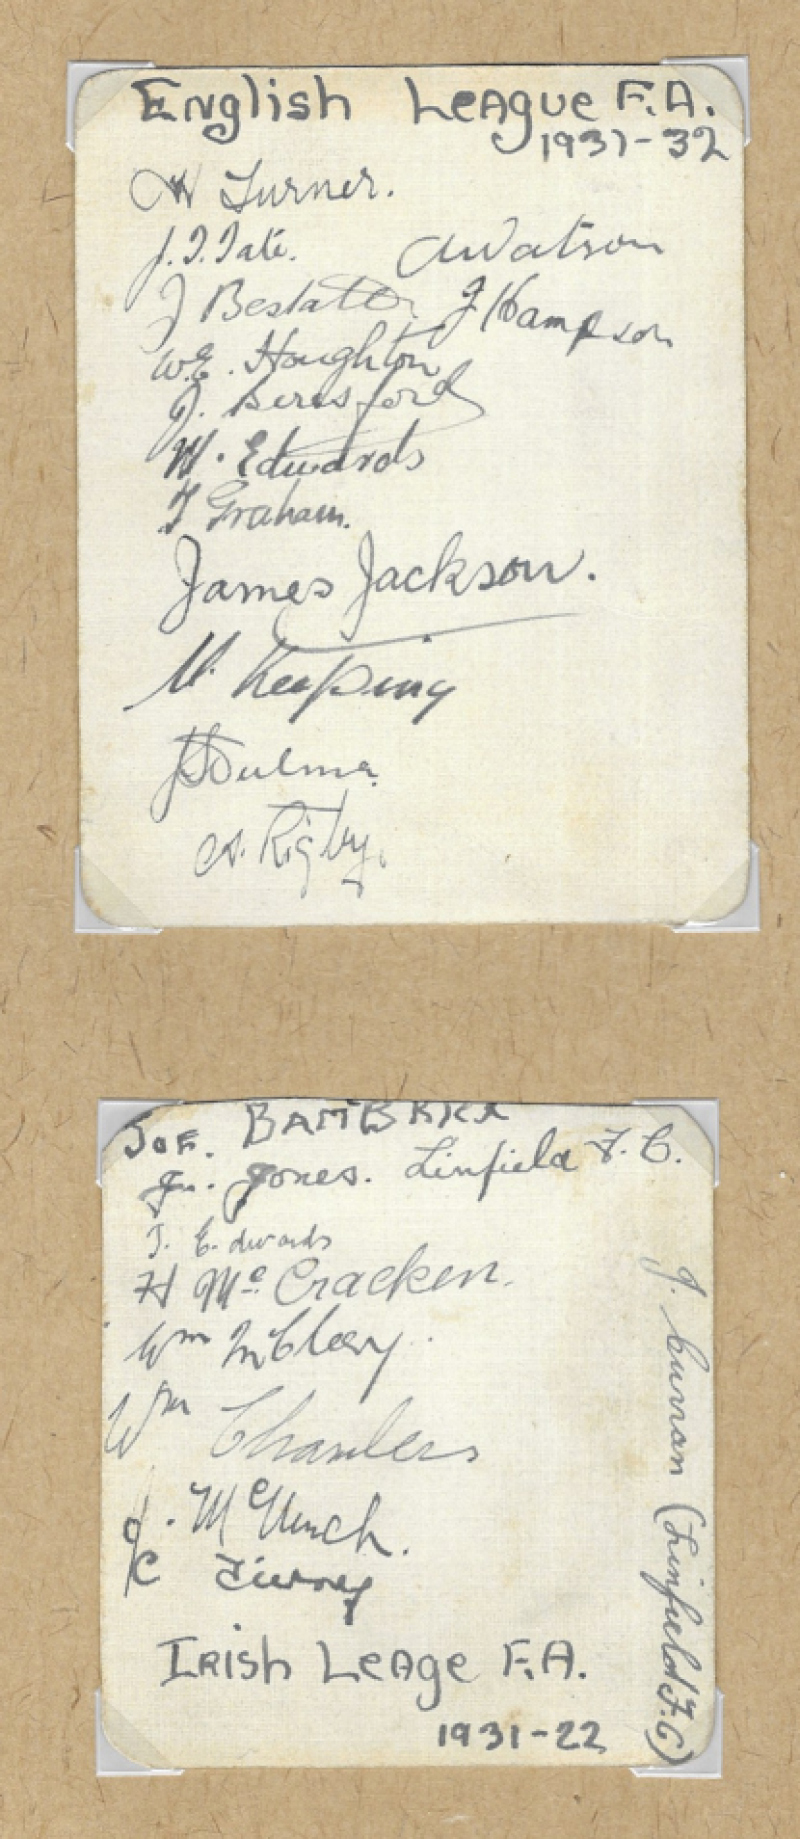 English League F.A.
1931-32
H Turner.
J. T. Tate. A Watson
J Bestall J Hampson
W.E. Houghton
J. Beresford
W. Edwards
T Graham.
James Jackson.
M. Keeping
J Hulme.
A. Rigby.
Joe. BAMBRICK
Jn. Jones. Linfield F.C.
J. Edwards
H McCracken.
Wm McCleery.
Wm Chambers
J. McNinch.
C Tierney
J. Curran (Linfield F.C)
IRish LeAge F.A.
1931-22